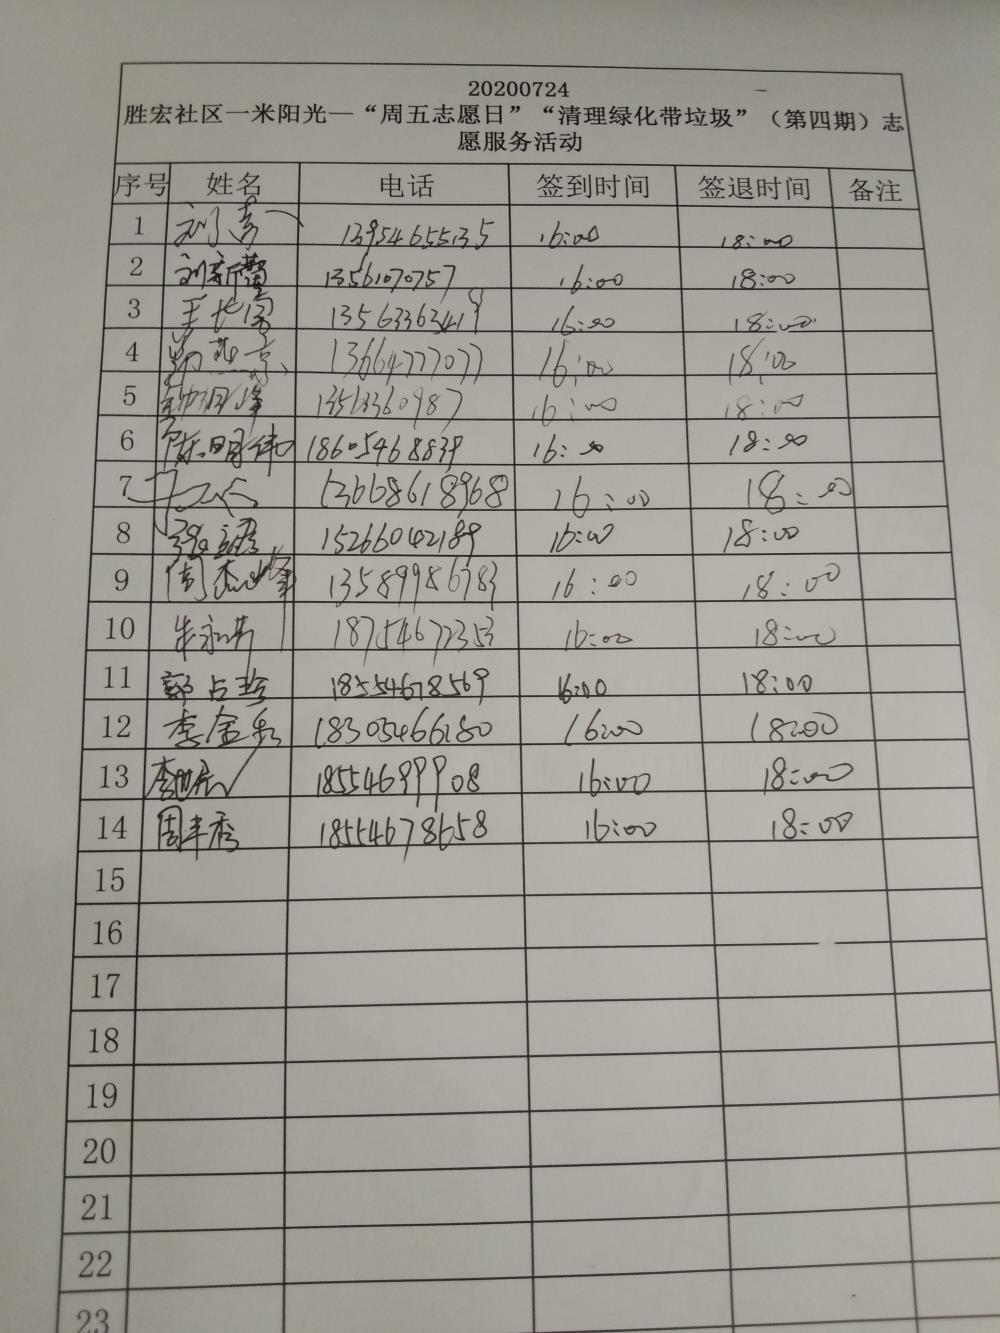 20200724
胜宏社区一米阳光—“周五志愿日”“清理绿化带垃圾”（第四期）志
愿服务活动
序号 姓名 电话 签到时间 签退时间 备注
1 13954655135 16:00 18:00
2 刘新蕾 13561070757 16:00 18:00
3 16:00 18:00
4 13664777077 16:00 18:00
5 13563360987 16:00 18:00
6 陈明伟 18605468839 16:00 18:00
7 13668618968 16:00 18:00
8 15266042189 16:00 18:00
9 周杰峰 13589986783 16:00 18:00
10 18754672353 16:00 18:00
11 郭占玲 18554678569 16:00 18:00
12 18305466280 16:00 18:00
13 18554699908 16:00 18:00
14 周丰秀 18554678658 16:00 18:00
15
16
17
18
19
20
21
22
23